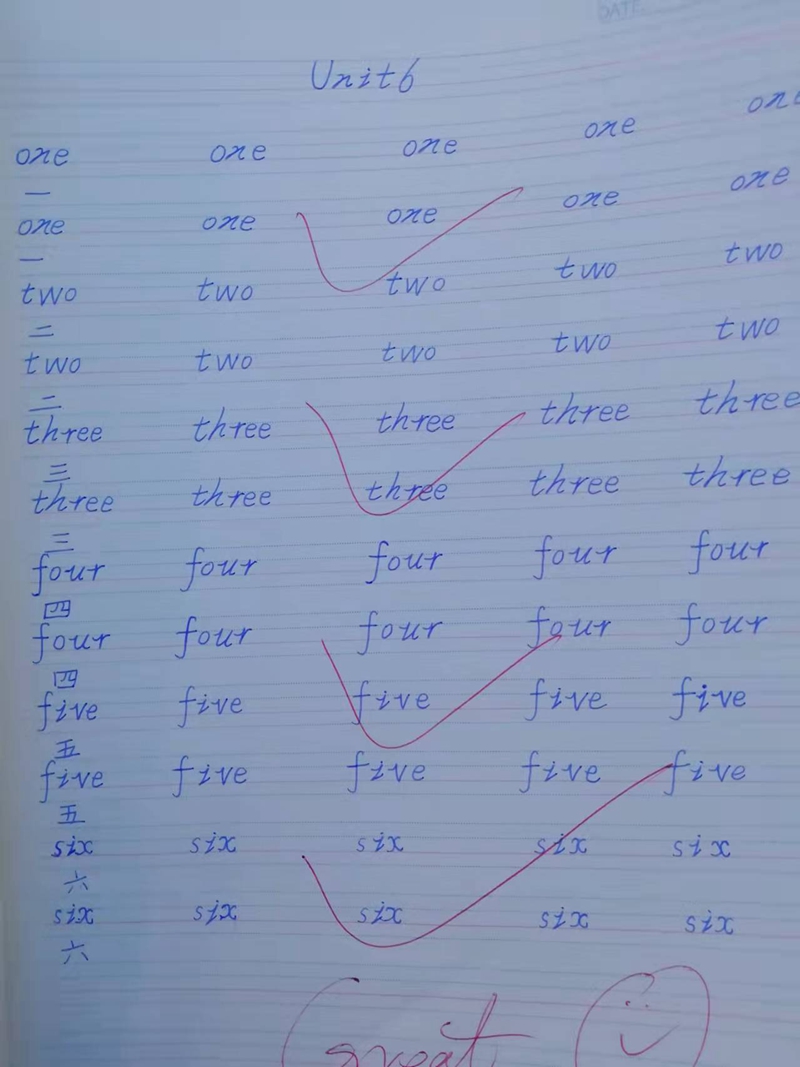 DATE
Unit6
one one one one one
一
one one one one one
一
two two two two two
二
two two two two two
二
three three three three three
三
three three three three three
三
four four four four four
四
four four four four four
四
five five five five five
五
five five five five five
五
six six six six six
六
six six six six six
六
Great